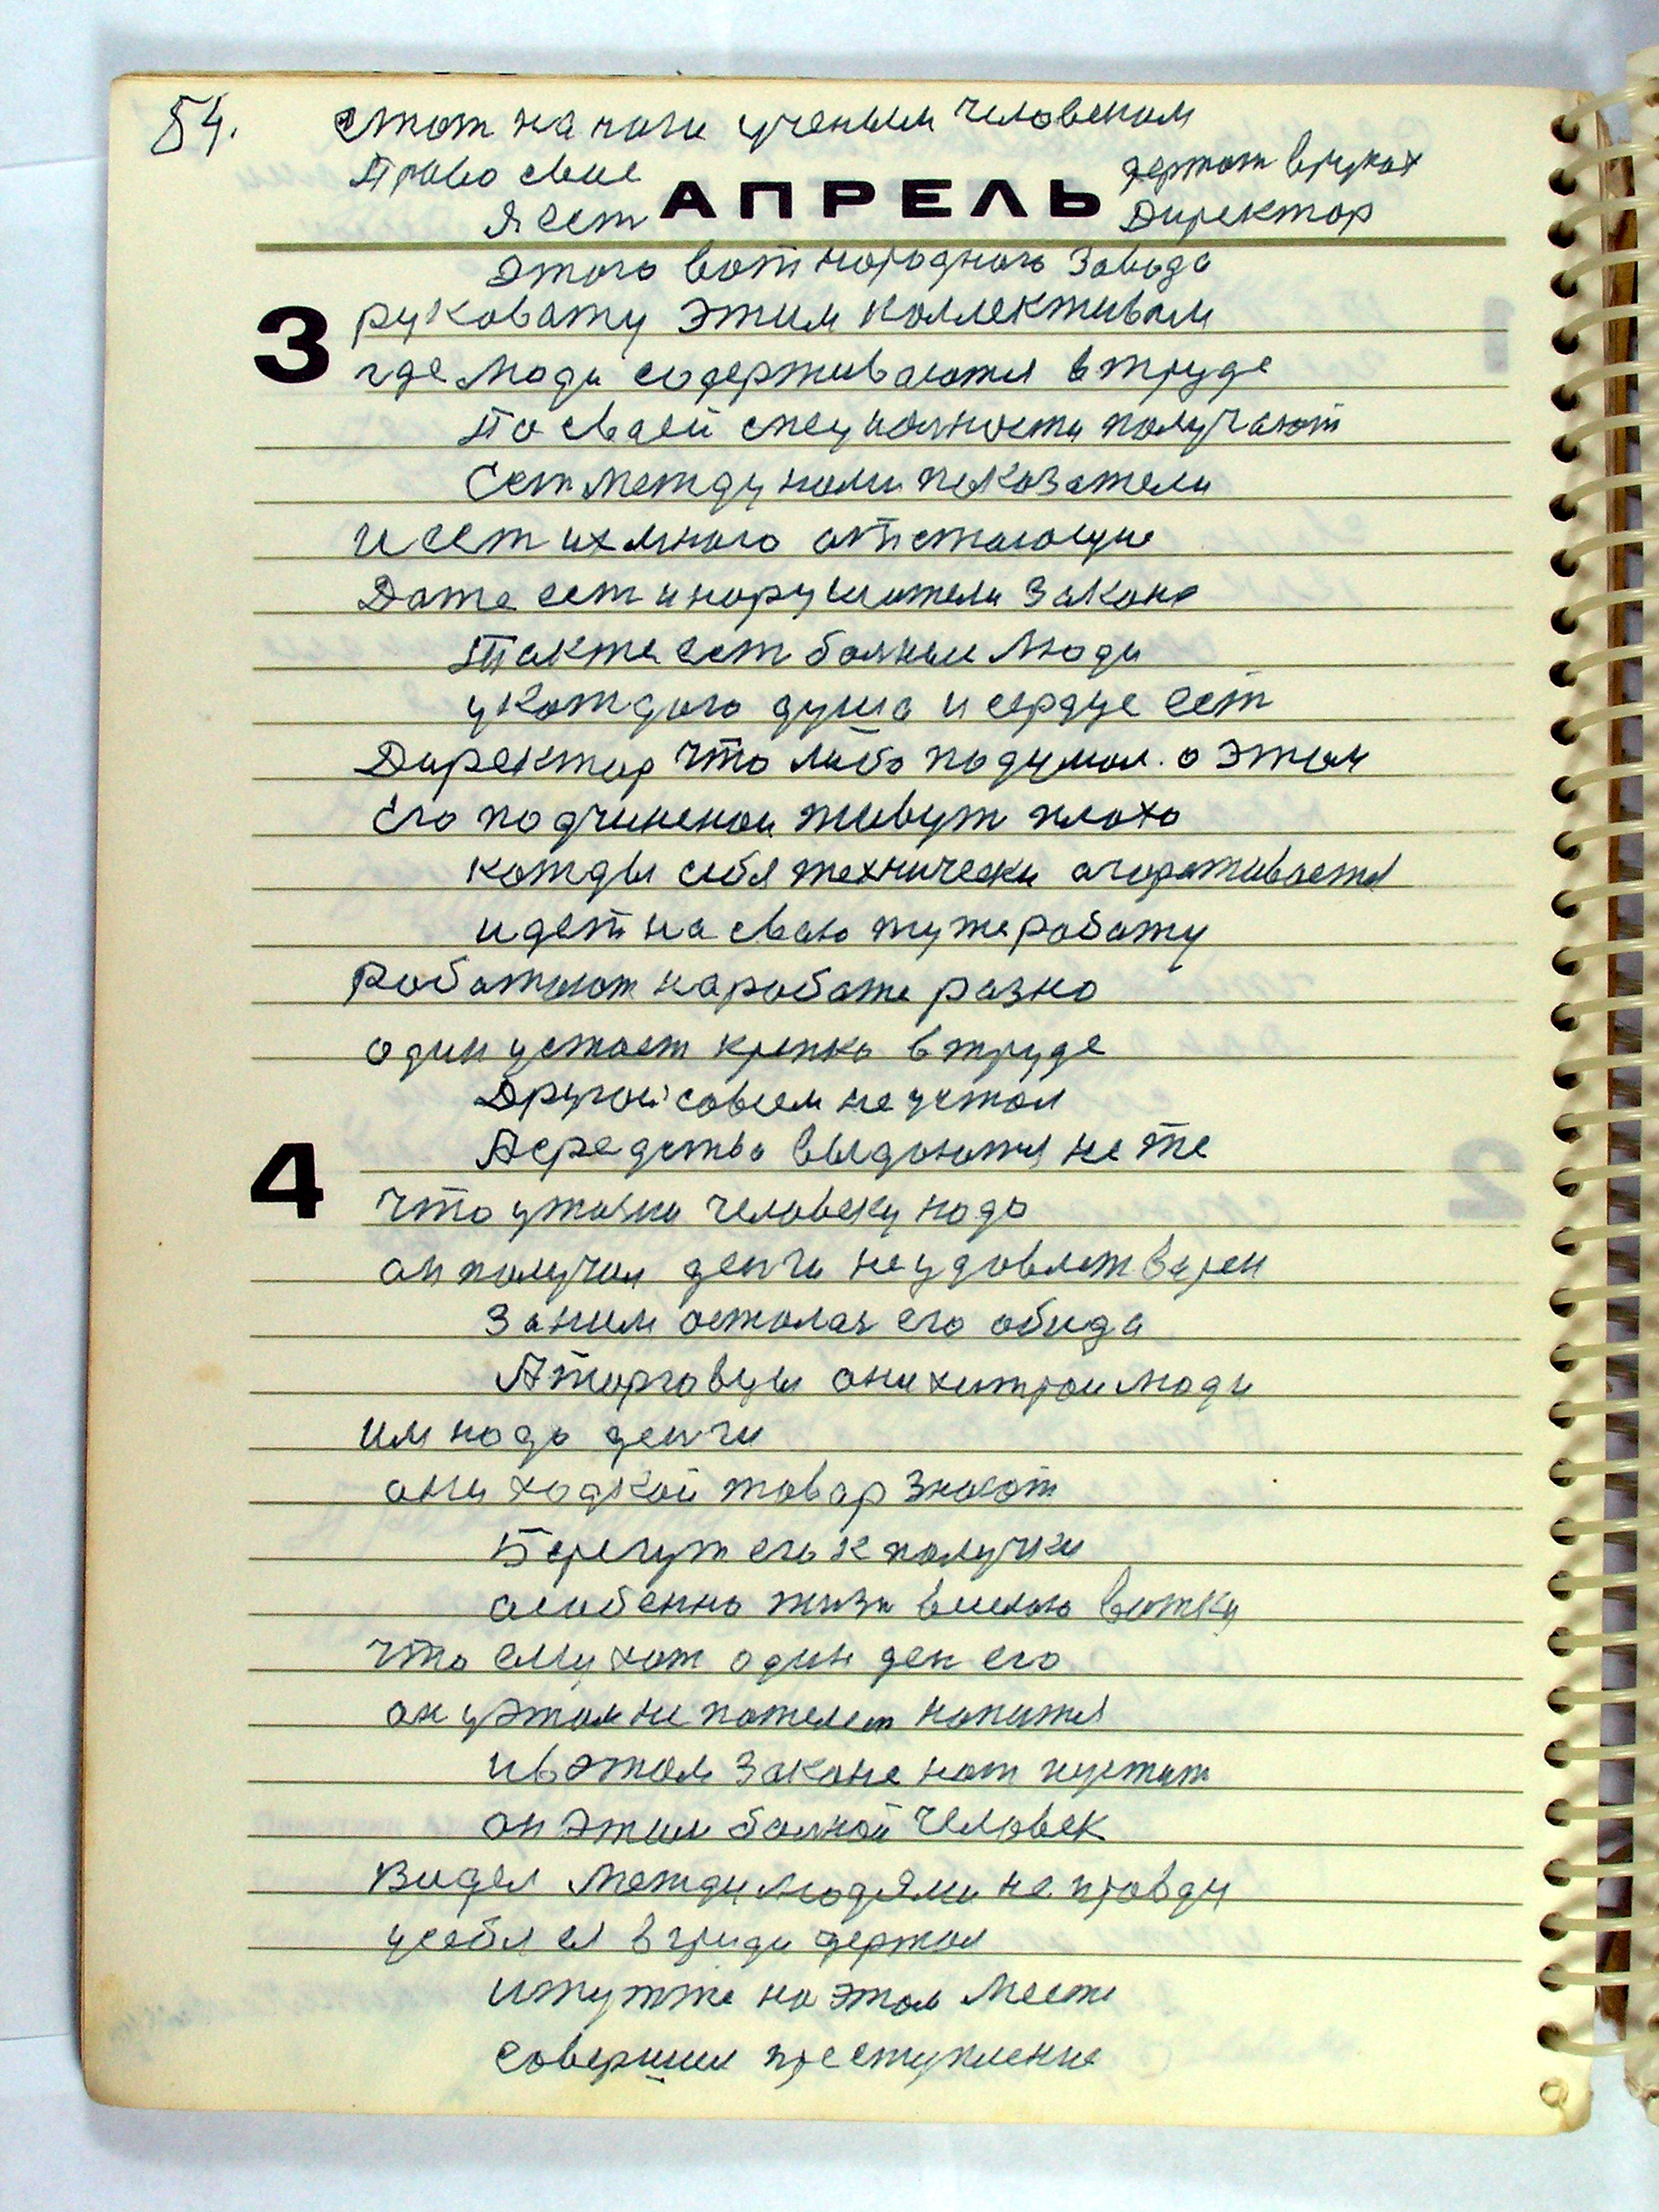 54.
стат на ноги ученым человеком
Право свае держат вруках
АПРЕЛЬ
Я ест Директор
этого вот народнаго завода
3
руковажу этим коллективам
где люди содерживаются втруде
По сваей специалности получают
Ест между ними показатели
и ест их много отстающие
Даже ест инарушители закона
Также ест болные люди
укаждого душа и сердце ест
Директор что либо подумал о этом
Его подчиненаи живут плохо
кажды себя технически огораживается
идет на сваю туже работу
Работают наработе разно
один устает крепко втруде
Другой совсем не устал
4
А средства выдаются не те
что ужочно человеку надо
он получил денги не удовлетварен
Заним осталас его обида
А торговцы они хитраи люди
им надо денги
они ходкой товар знают
Берегут его к получки
особенно жизн висилою вотку
что ему хот один ден его
он уэтом не пожелет напится
ивэтом законе нат пустит
он этим болной человек
Видел между людями не правду
усебя ея вгруди держал
итутже на этом месте
совершил преступление